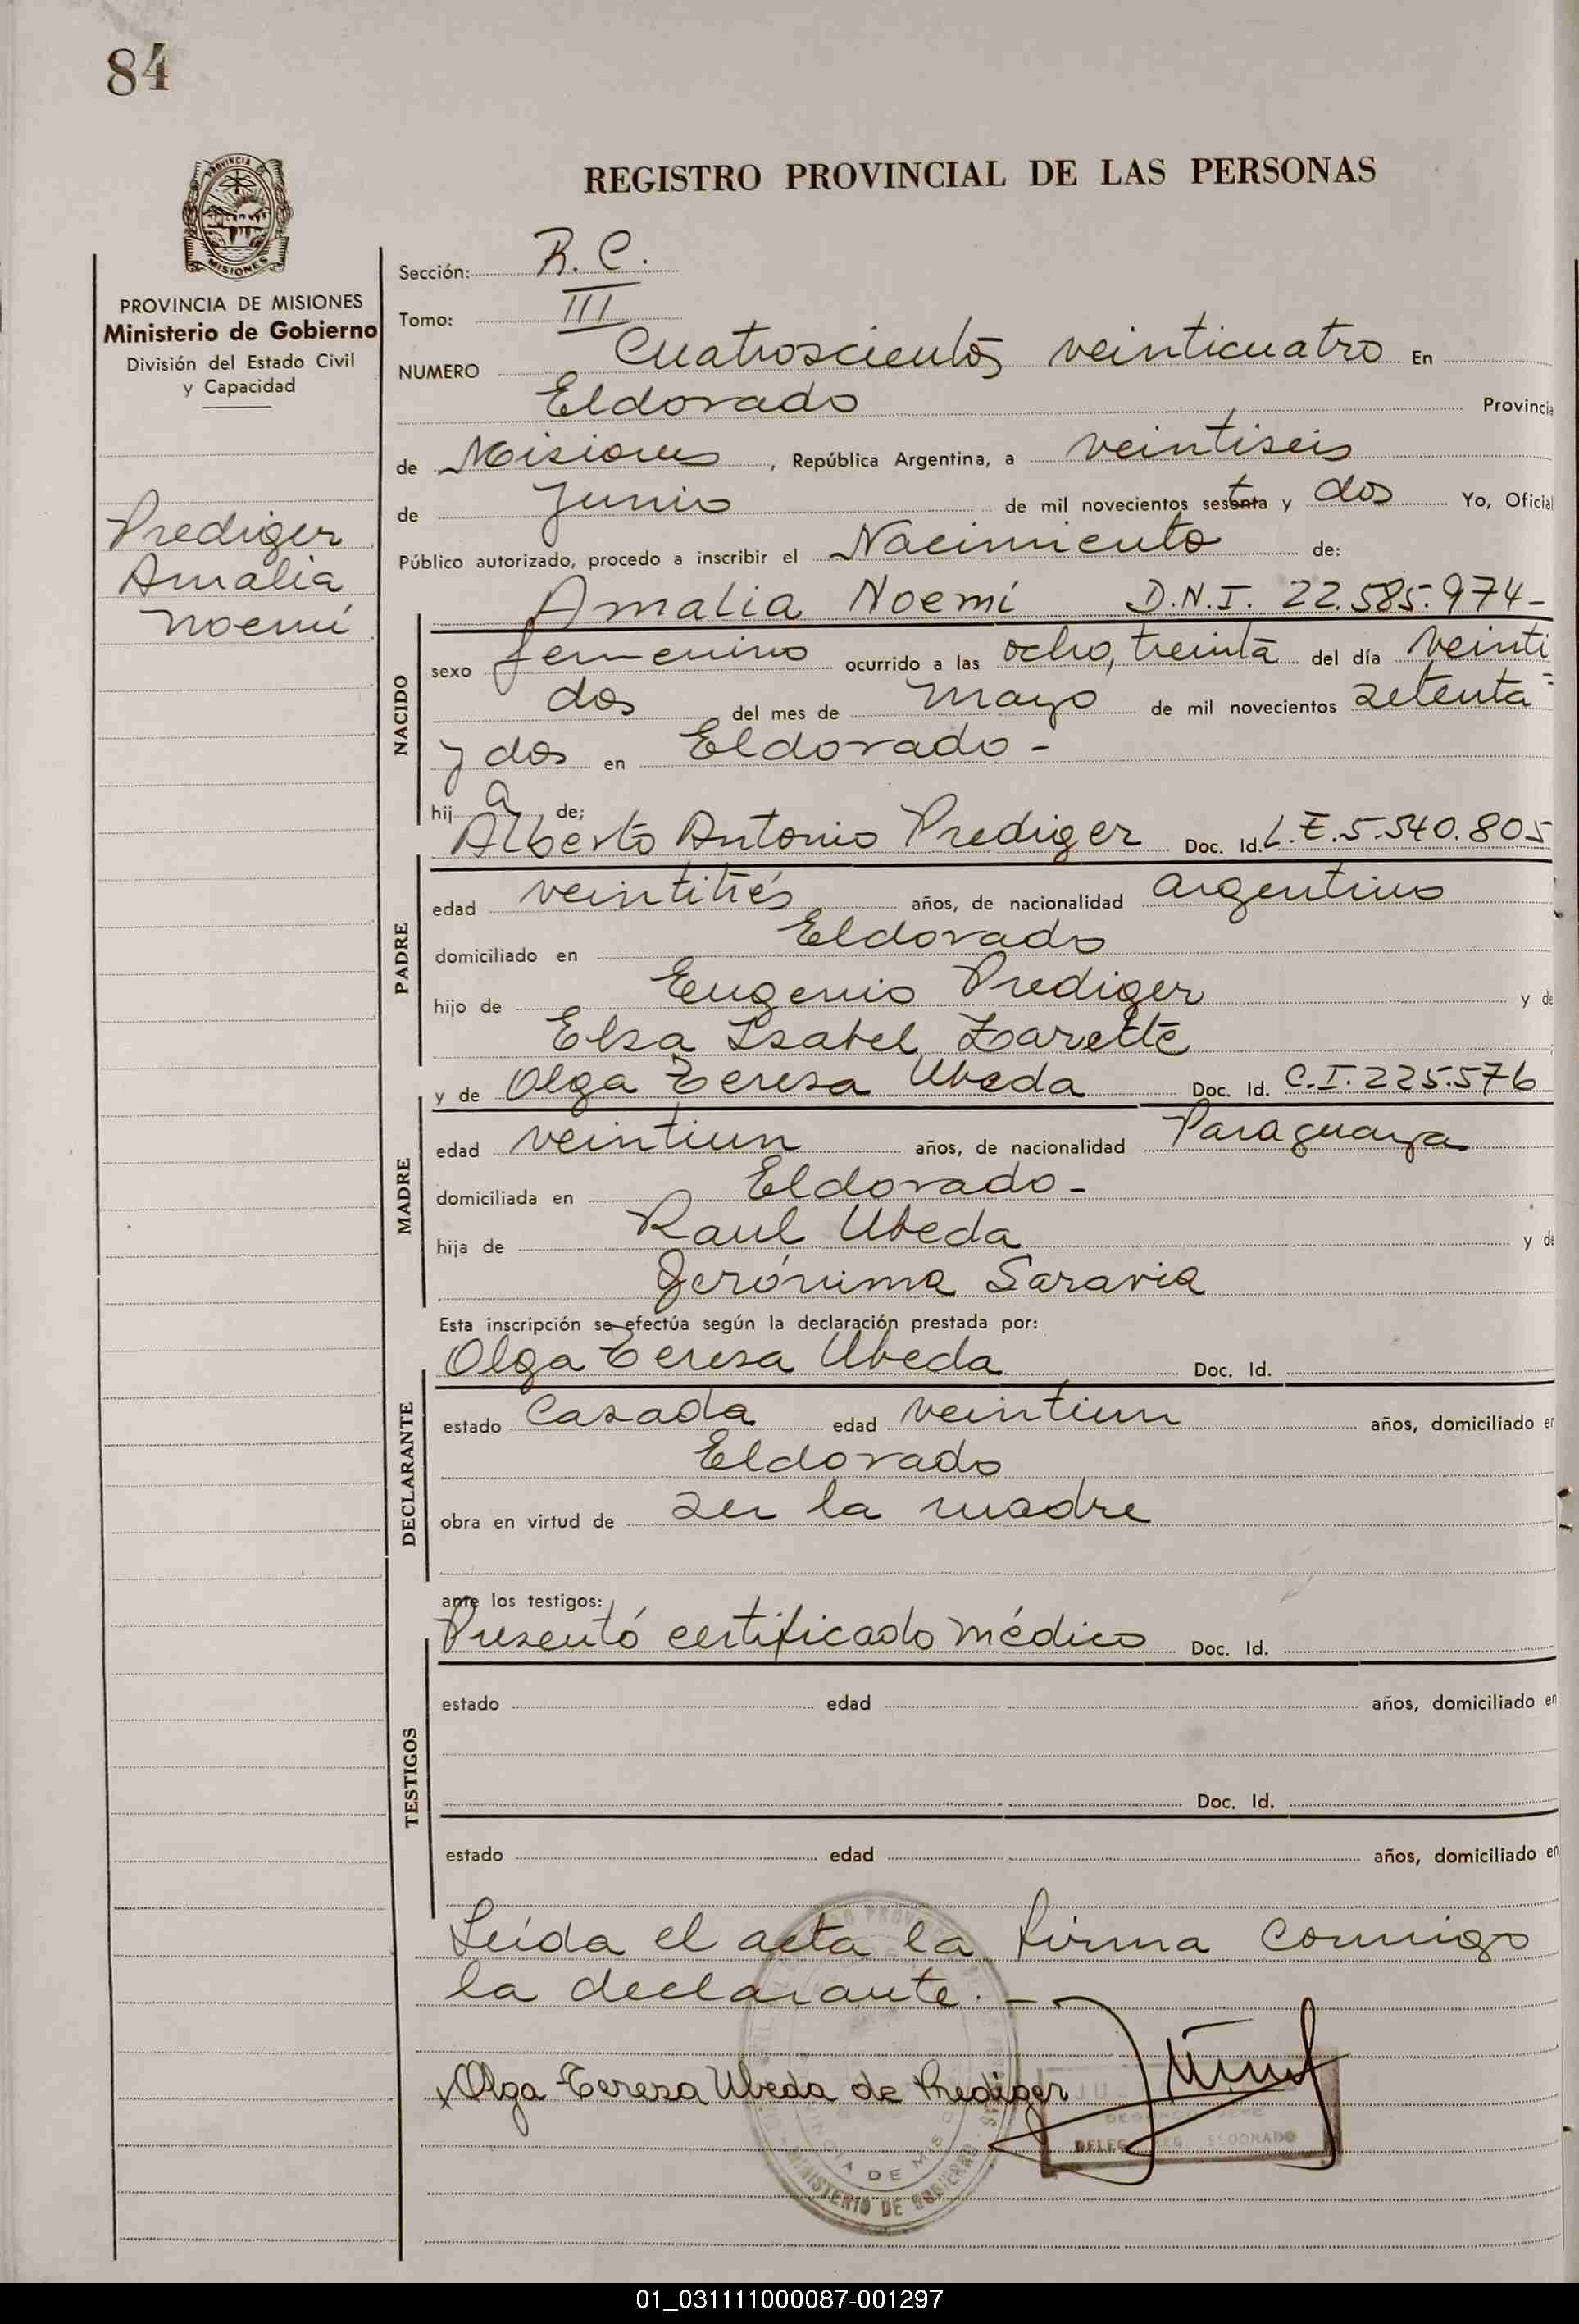 84
REGISTRO PROVINCIAL DE LAS PERSONAS
PROVINCIA
MISIONES
PROVINCIA DE MISIONES
Ministerio de Gobierno
División del Estado Civil
y Capacidad
Prediger
Amalia
Noemí
Sección: R. C.
Tomo: III
NUMERO Cuatroscientos veinticuatro En
Eldorado Provincia
de Misiones, República Argentina, a veintiseis
de Junio de mil novecientos setenta y dos Yo, Oficial
Público autorizado, procedo a inscribir el Nacimiento de:
NACIDO
Amalia Noemí D.N.I. 22.585.974-
sexo femenino ocurrido a las ocho, treinta del día veinti
dos del mes de mayo de mil novecientos setenta
y dos en Eldorado -
hij a de;
PADRE
Alberto Antonio Prediger Doc. Id. L.E. 5.540.805
edad veintitrés años, de nacionalidad argentino
domiciliado en Eldorado
hijo de Eugenio Prediger y de
Elsa Isabel Zarette
MADRE
y de Olga Teresa Ubeda Doc. Id. C.I. 225.576
edad veintiun años, de nacionalidad Paraguaya
domiciliada en Eldorado -
hija de Raul Ubeda y de
Jerónima Saravia
Esta inscripción se efectúa según la declaración prestada por:
DECLARANTE
Olga Teresa Ubeda Doc. Id.
estado Casada edad veintiun años, domiciliado en
Eldorado
obra en virtud de ser la madre
ante los testigos:
TESTIGOS
Presentó certificado médico Doc. Id.
estado edad años, domiciliado en
Doc. Id.
estado edad años, domiciliado en
Leída el acta la firma conmigo
la declarante. -
Olga Teresa Ubeda de Prediger
DELEG. ELDORADO
MINISTERIO DE GOBIERNO
01_031111000087-001297